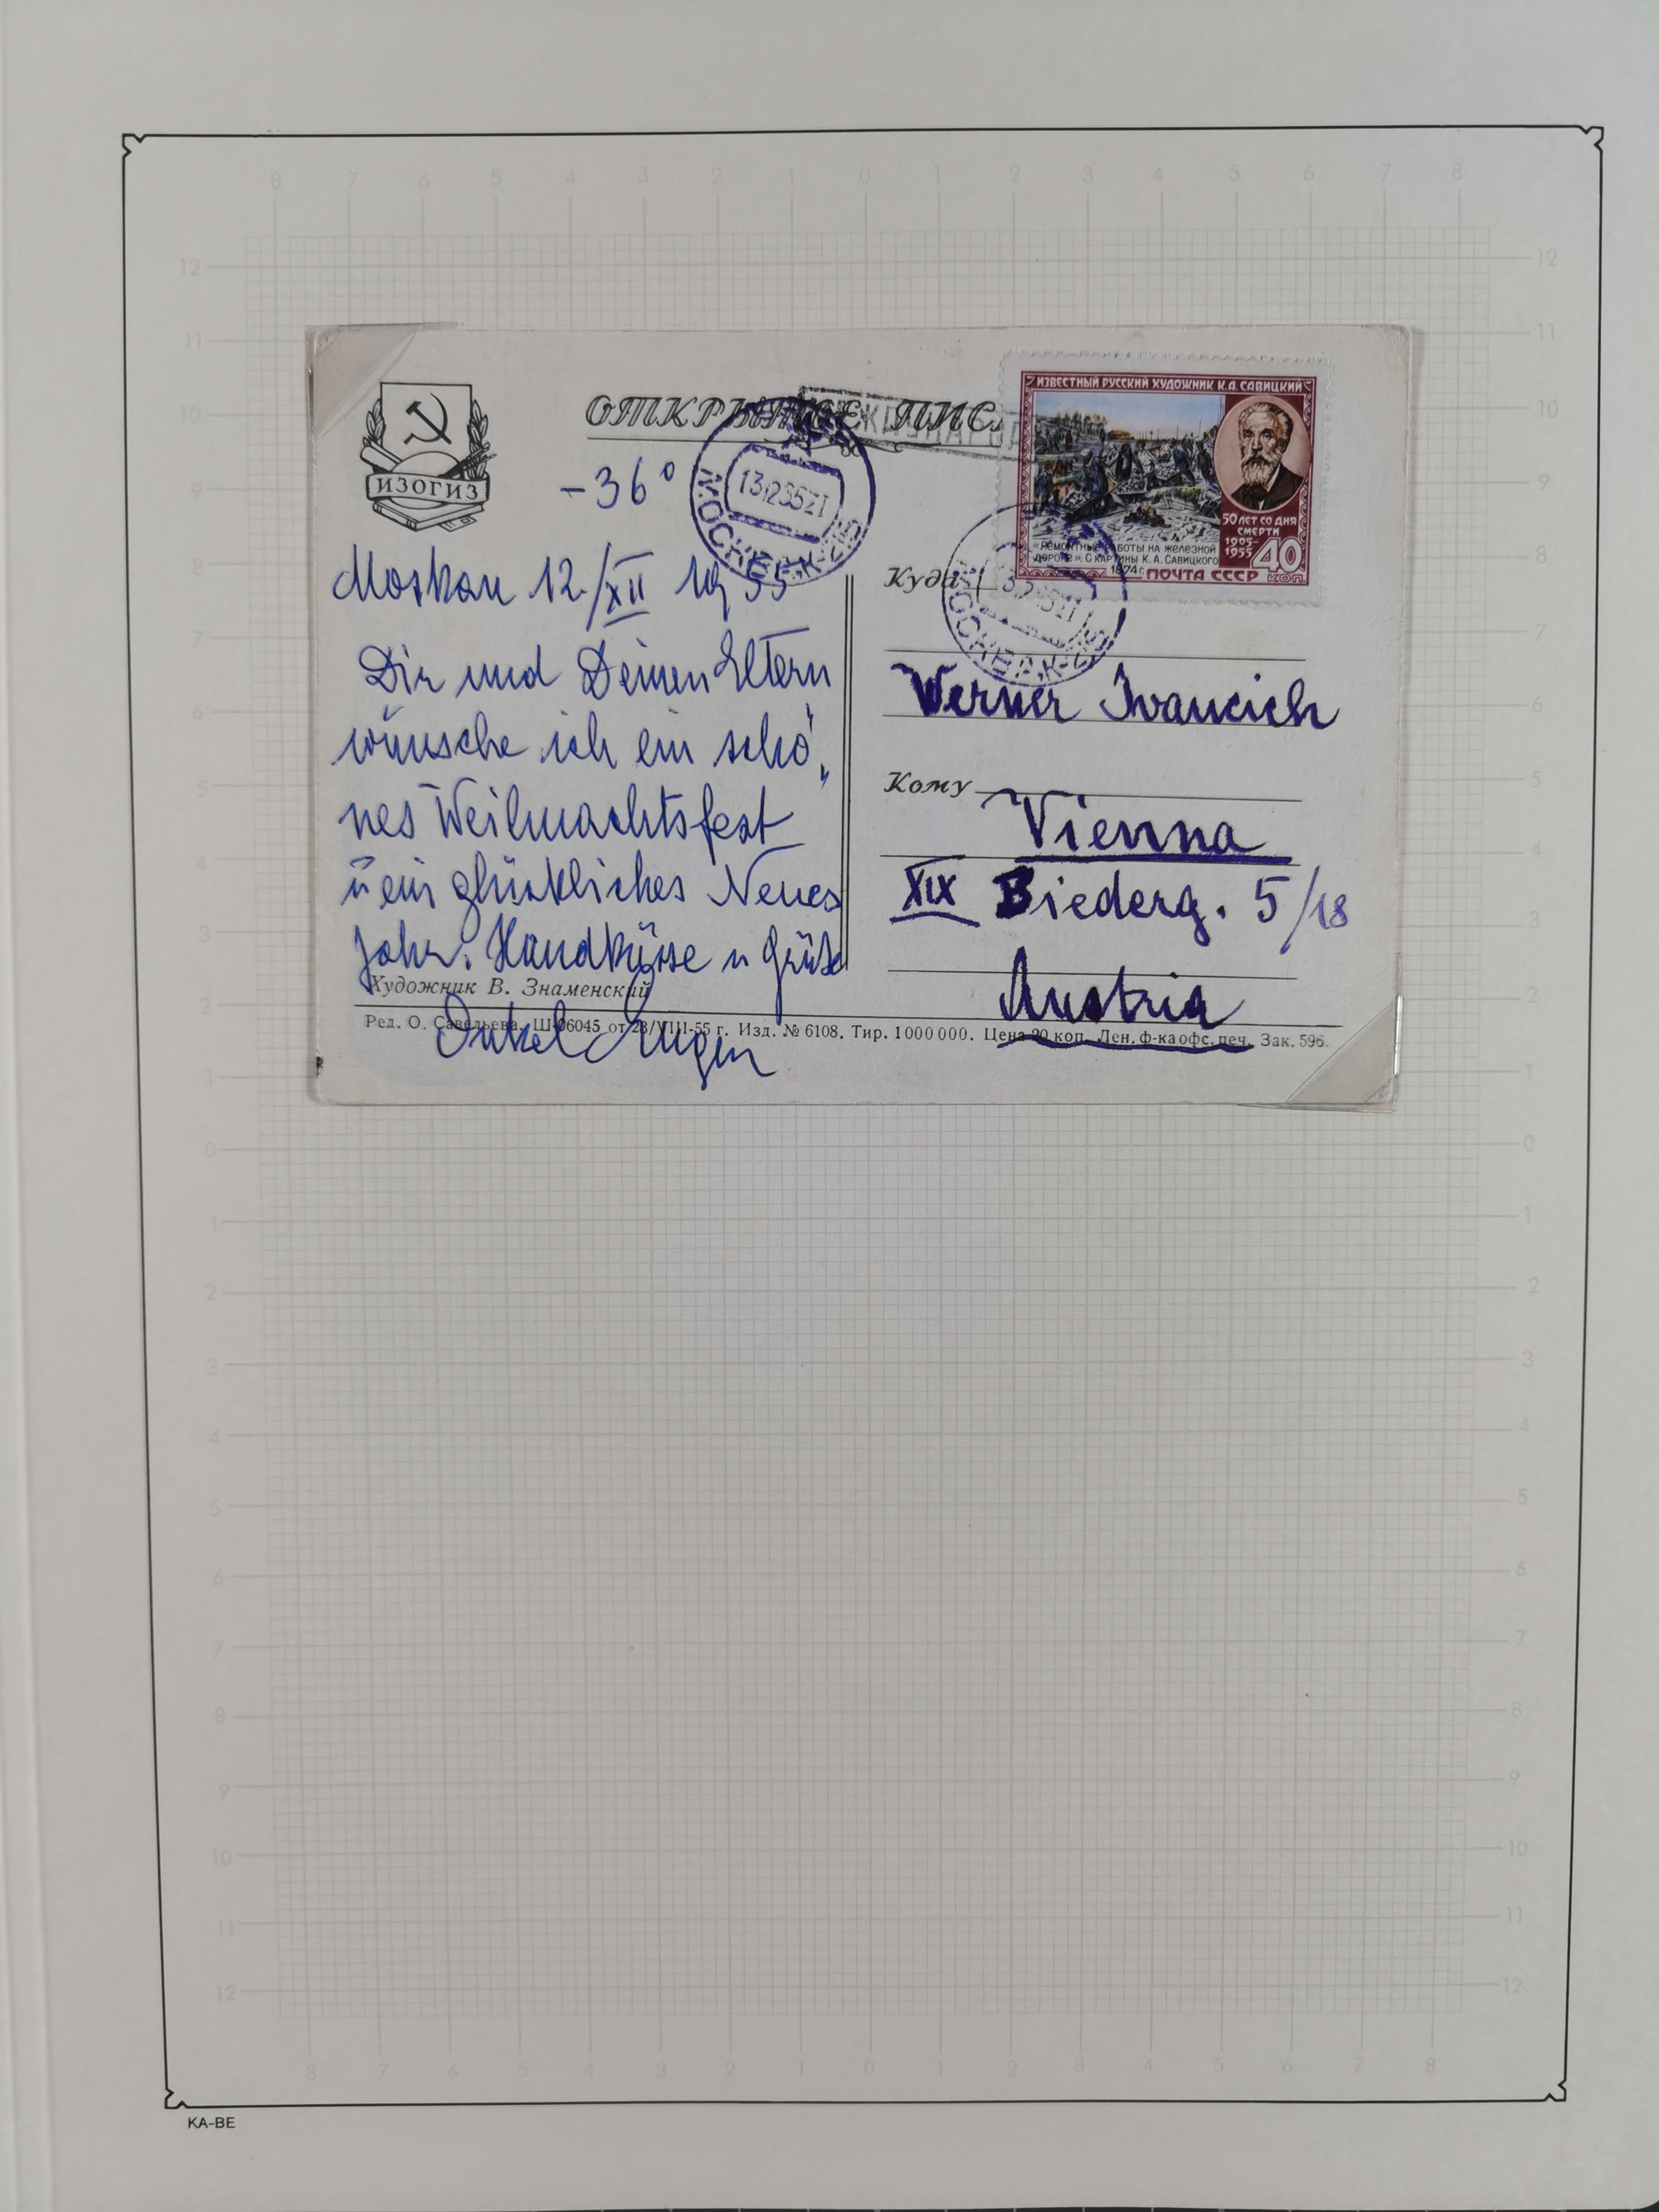 ОТКРЫТОЕ ПИС
ИЗОГИЗ
-36°
МОСКВА
ИЗВЕСТНЫЙ РУССКИЙ ХУДОЖНИК К.А. САВИЦКИЙ
50 ЛЕТ СО ДНЯ
СМЕРТИ
1905-
1955
40
КОП.
«РЕМОНТНЫЕ РАБОТЫ НА ЖЕЛЕЗНОЙ
ДОРОГЕ». С КАРТИНЫ К.А. САВИЦКОГО
1874 г.
ПОЧТА СССР
Moskau 12./XII 1955
Dir und Deinen Eltern
wünsche ich ein schö„
nes Weihnachtsfest
u ein glückliches Neues
Jahr. Handküsse u Grüße
Onkel Eugen
Куда
Werner Ivancich
Кому
Vienna
XIX Biederg. 5/18
Austria
Художник В. Знаменский
Ред. О. Савельева. Ш-06045 от 23/VIII-55 г. Изд. № 6108. Тир. 1000000. Цена 20 коп. Лен. ф-ка офс. печ. Зак. 596.
8 7 6 5 4 3 2 1 0 1 2 3 4 5 6 7 8
12 12
11 11
10 10
9 9
8 8
7 7
6 6
5 5
4 4
3 3
2 2
1 1
0 0
1 1
2 2
3 3
4 4
5 5
6 6
7 7
8 8
9 9
10 10
11 11
12 12
8 7 6 5 4 3 2 1 0 1 2 3 4 5 6 7 8
KA-BE